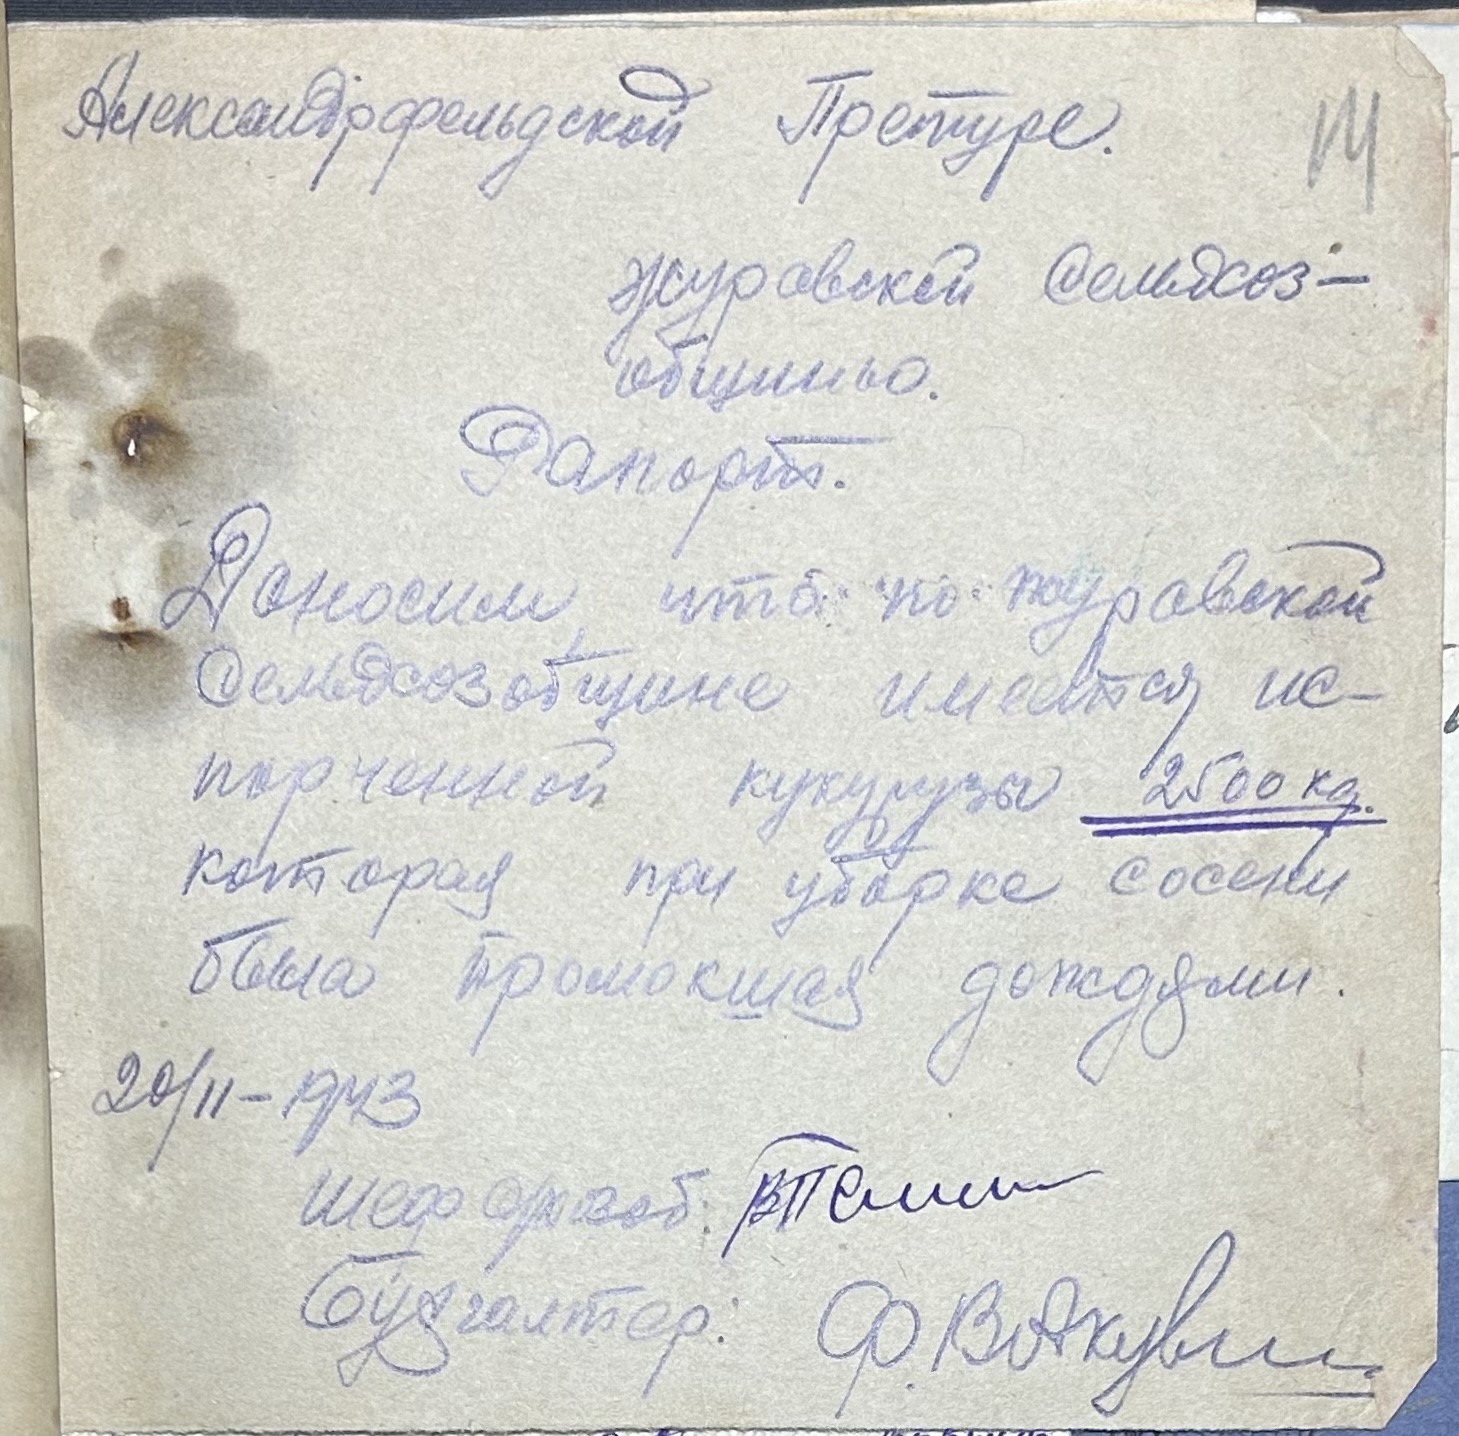 Александрфельдской Претуре.
журавской Сельдхоз-
общины.
Рапорт.
Доносим, что по журавской
Сельдхозобщине имеется ис-
порченной кукурузы 2500 кг.
которая при уборке сосени
была промокшая дождями.
20/II-1943
Шеф
Бухгалтер: Ф.